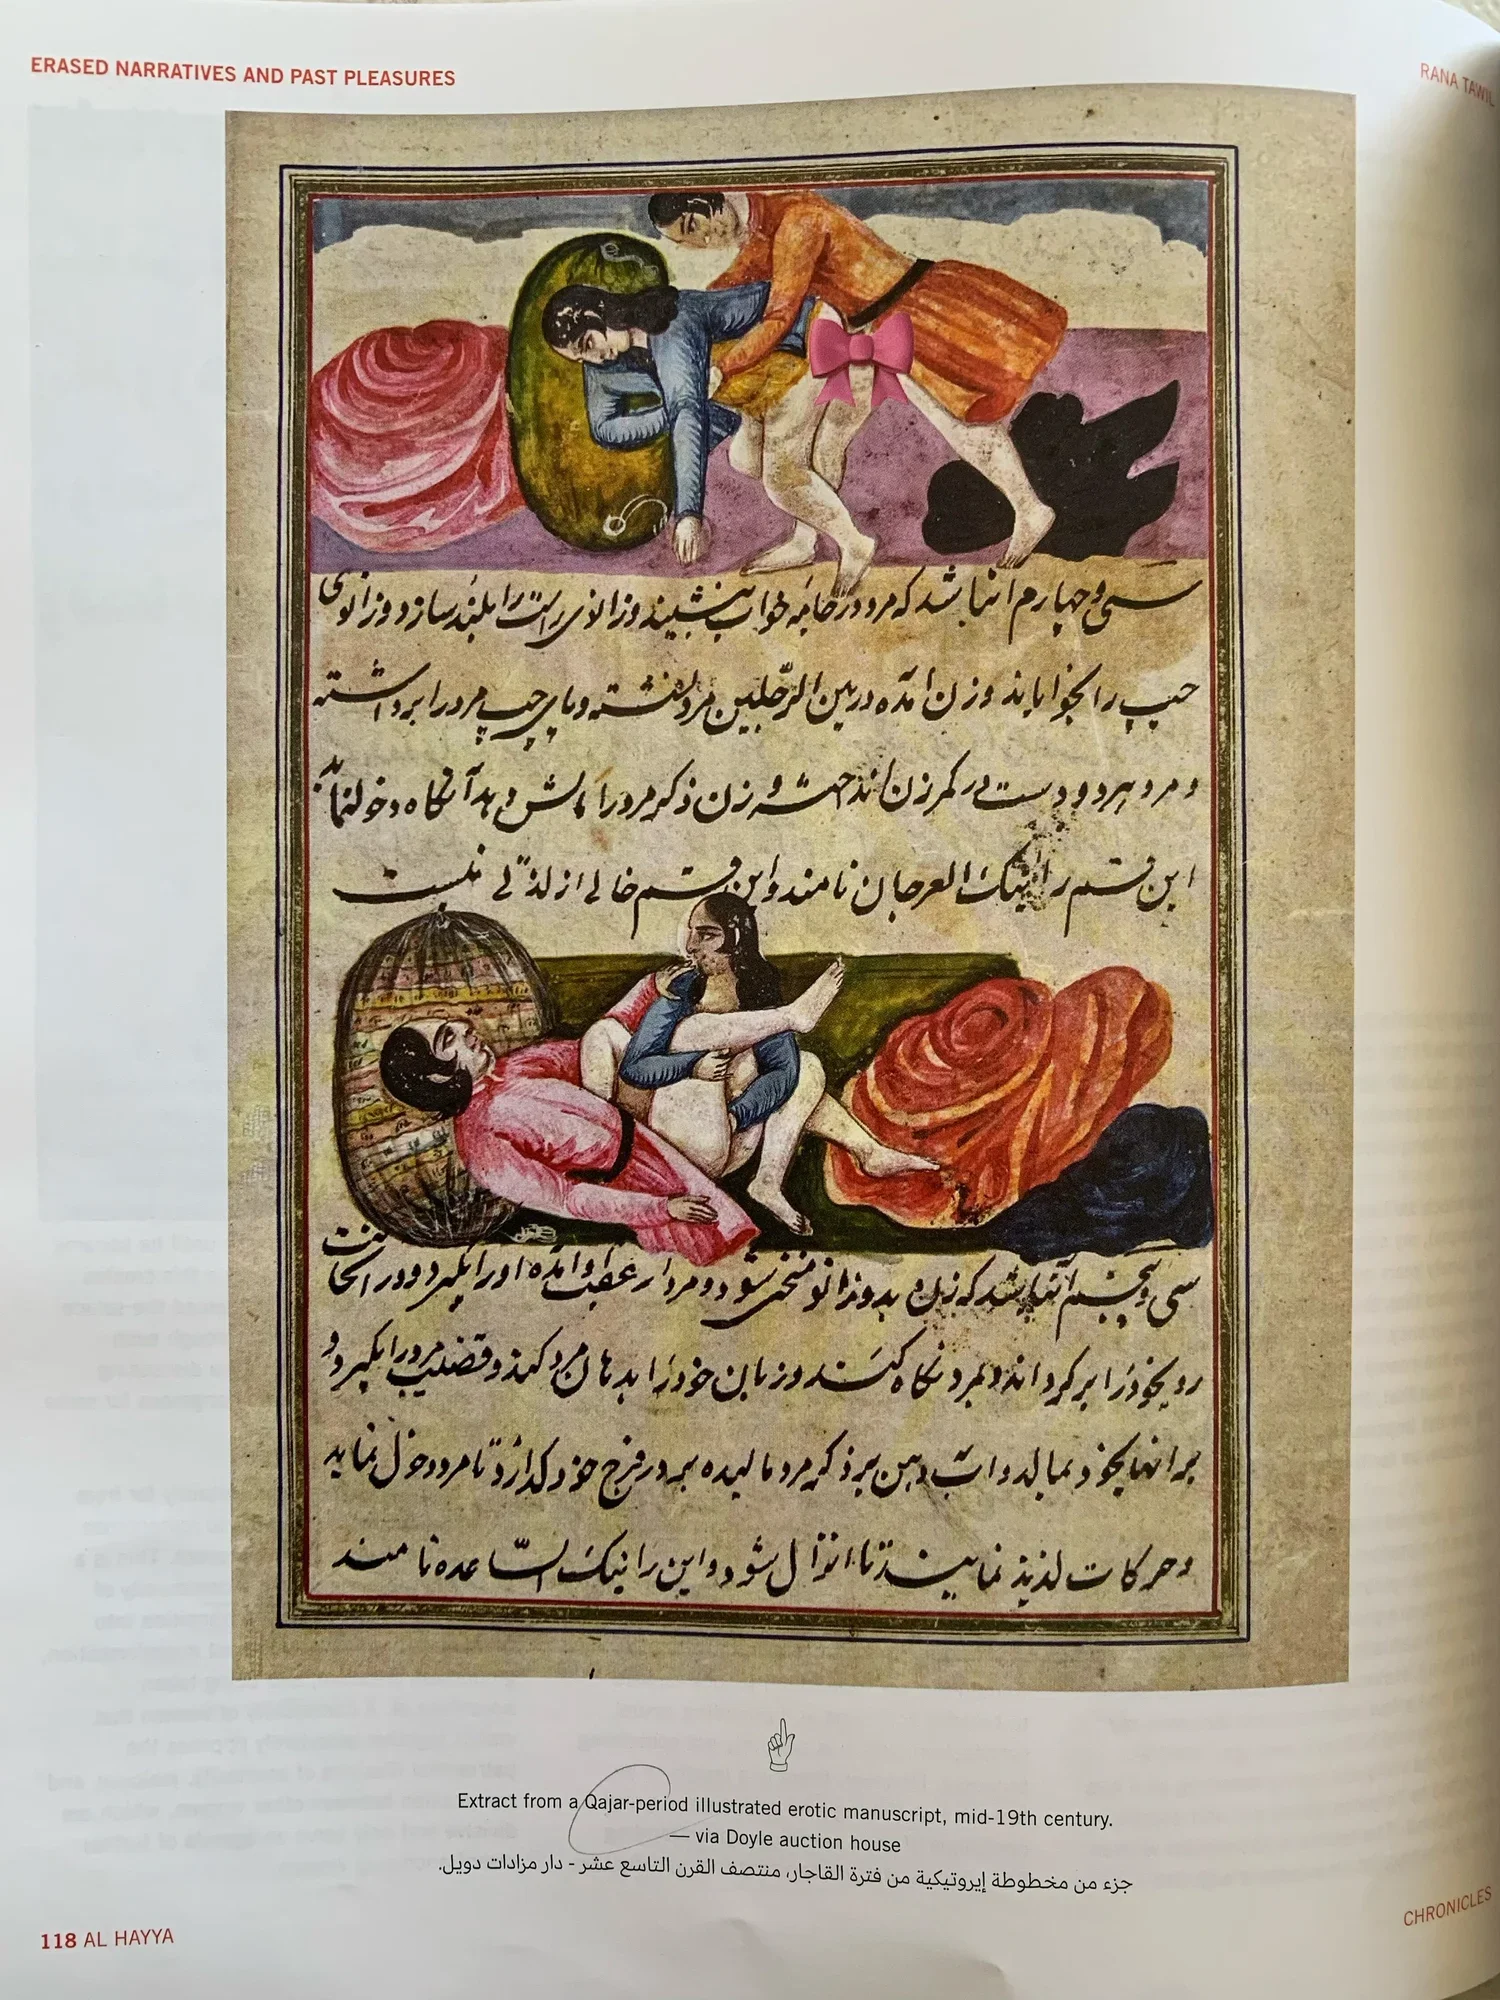 ERASED NARRATIVES AND PAST PLEASURES
RANA TAWIL
سی و چهارم آنباشد که مرد در جامه خواب بنشیند و زانوی راست را بلند سازد و زانوی
چپ را بخواباند و زن آمده در بین الرّجلین مرد نشسته و پای چپ مرد را برداشته
و مرد هر دو دست در کمر زن انداخته و زن ذکر مرد را مالش دهد آنگاه دخول نماید
این قسم را نیک العرجان نامند و این قسم خالی از لذّتی نیست
سی و پنجم آنباشد که زن بدو زانو منحنی شود و مرد از عقب او آمده او را بگیرد و در آنحالت
رو بخود را برگرداند و بمرد نگاه کند و زبان خود را بدهان مرد کند و قضیب مرد را بگیرد و
بر آنها بخود بمالد و آب دهن بر ذکر مرد مالیده بر در فرج خود گذارد تا مرد دخول نماید
و حرکات لذیذ نمایند تا انزال شود و این را نیک السّاعده نامند
Extract from a Qajar-period illustrated erotic manuscript, mid-19th century.
— via Doyle auction house
جزء من مخطوطة إيروتيكية من فترة القاجار، منتصف القرن التاسع عشر - دار مزادات دويل.
118 AL HAYYA
CHRONICLES